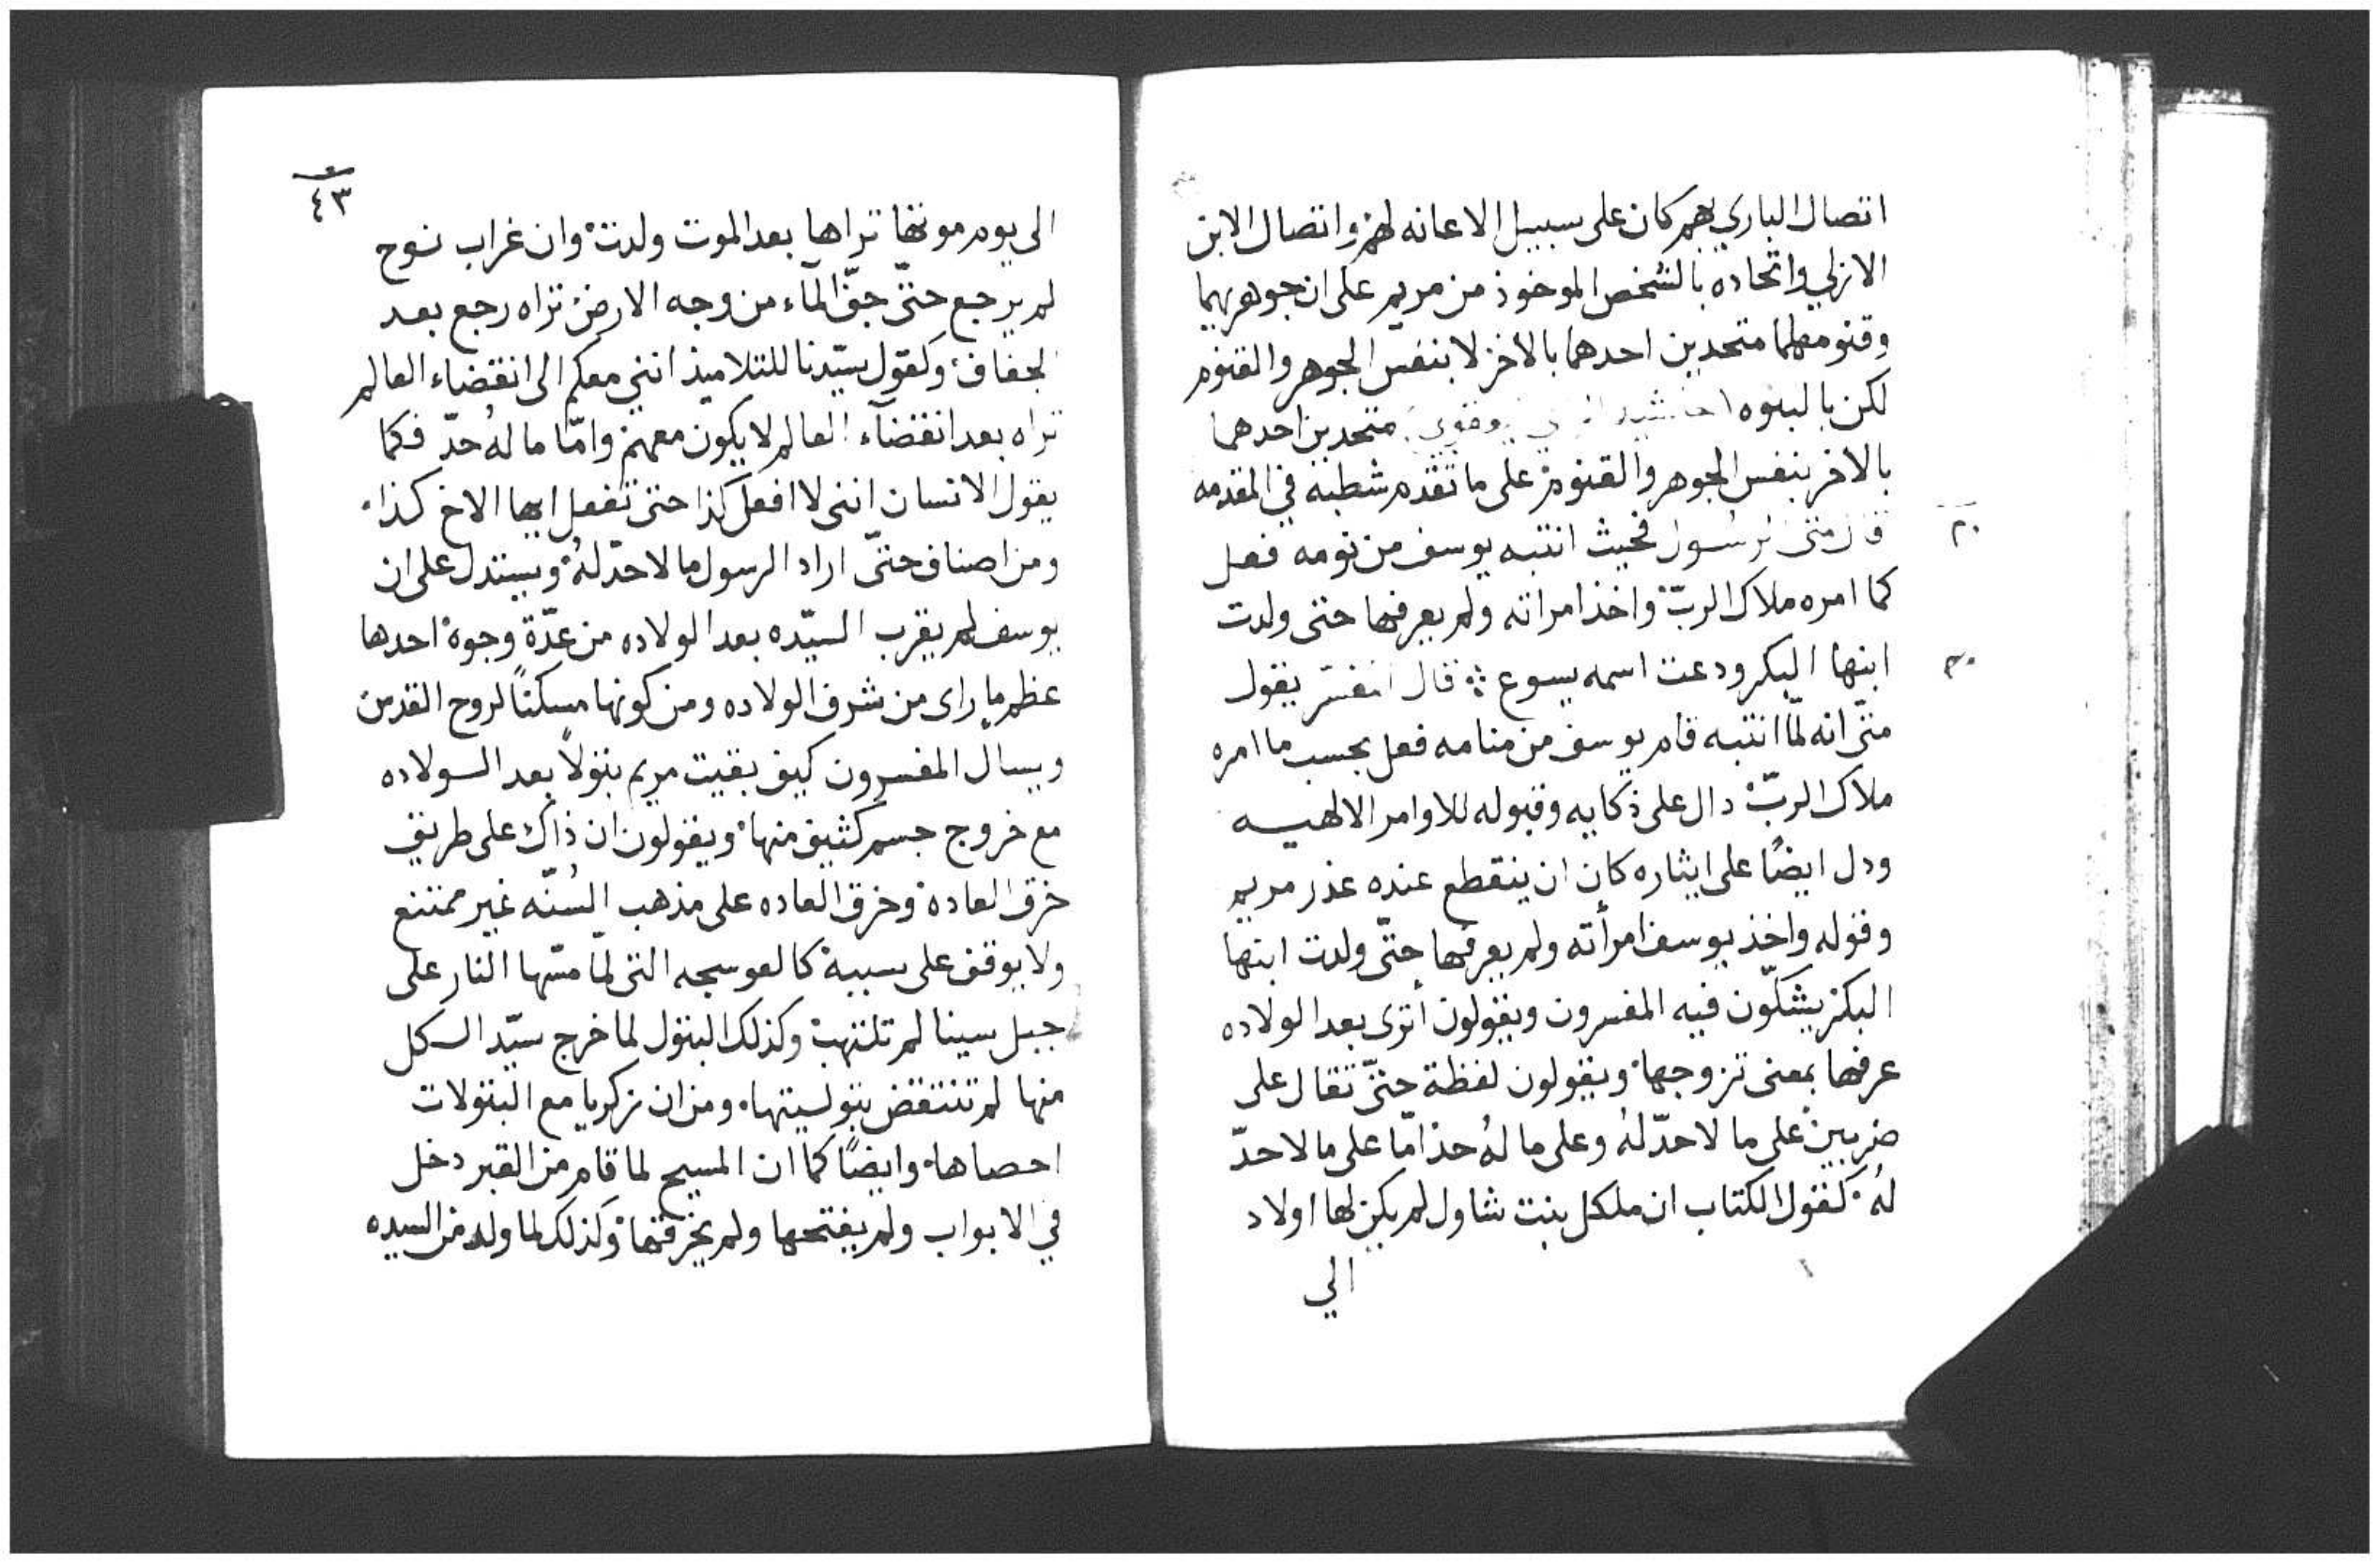 اتصال الباري بهم كان على سبيل الاعانه لهم واتصال الابن
الازلي واتحاده بالشخص الموخوذ من مريم على ان جوهريهما
وقنومهما متحدين احدهما بالاخر لا بنفس الجوهر والقنوم
لكن بالبنوه متحدين احدهما
بالاخر بنفس الجوهر والقنوم على ما تقدم شطبه في المقدمه
قال متى الرسول فحيث انتبه يوسف من نومه فعل
كما امره ملاك الربّ واخذ امراته ولم يعرفها حتى ولدت
ابنها البكر ودعت اسمه يسوع قال المفسّر يقول
متّى انه لمّا انتبه قام يوسف من منامه فعل بحسب ما امره
ملاك الربّ دال على ذكايه وقبوله للاوامر الالهيه
ودل ايضًا على ايثاره كان ان ينقطع عنده عذر مريم
وقوله واخذ يوسف امرأته ولم يعرفها حتّى ولدت ابنها
البكر يشكّون فيه المفسرون ويقولون أترى بعد الولاده
عرفها بمعنى تزوجها ويقولون لفظة حتّى تقال على
ضربين على ما لا حدّ لهُ وعلى ما لهُ حد امّا على ما لا حدّ
لهُ كقول الكتاب ان ملكل بنت شاول لم يكن لها اولاد
الي
٤٣
الى يوم موتها تراها بعد الموت ولدت وان غراب نوح
لم يرجع حتّى جفّ المآء من وجه الارض تراه رجع بعد
الجفاف وكقول سيّدنا للتلاميذ انني معكم الى انقضاء العالم
تراه بعد انقضآء العالم لا يكون معهم وامّا ما لهُ حدّ فكما
يقول الانسان انني لا افعل كذا حتى تفعل ايها الاخ كذا
ومن اصناف حتّى اراد الرسول ما لا حدّ لهُ ويستدل على ان
يوسف لم يقرب السيّده بعد الولاده من عدّة وجوه احدها
عظم ما راى من شرف الولاده ومن كونها مسكنًا لروح القدس
ويسال المفسرون كيف بقيت مريم بتولاً بعد الولاده
مع خروج جسم كثيف منها ويقولون ان ذاك على طريق
خرق العاده وخرق العاده على مذهب السُنّه غير ممتنع
ولا يوقف على سببه كالعوسجه التى لمّا مسّها النار على
جبل سينا لم تلتهب وكذلك البتول لما خرج سيّد الكل
منها لم تنتقض بتوليتها ومن ان زكريا مع البتولات
احصاها وايضًا كما ان المسيح لما قام من القبر دخل
في الابواب ولم يفتحها ولم يخرقها وكذلك لما ولد من السيده